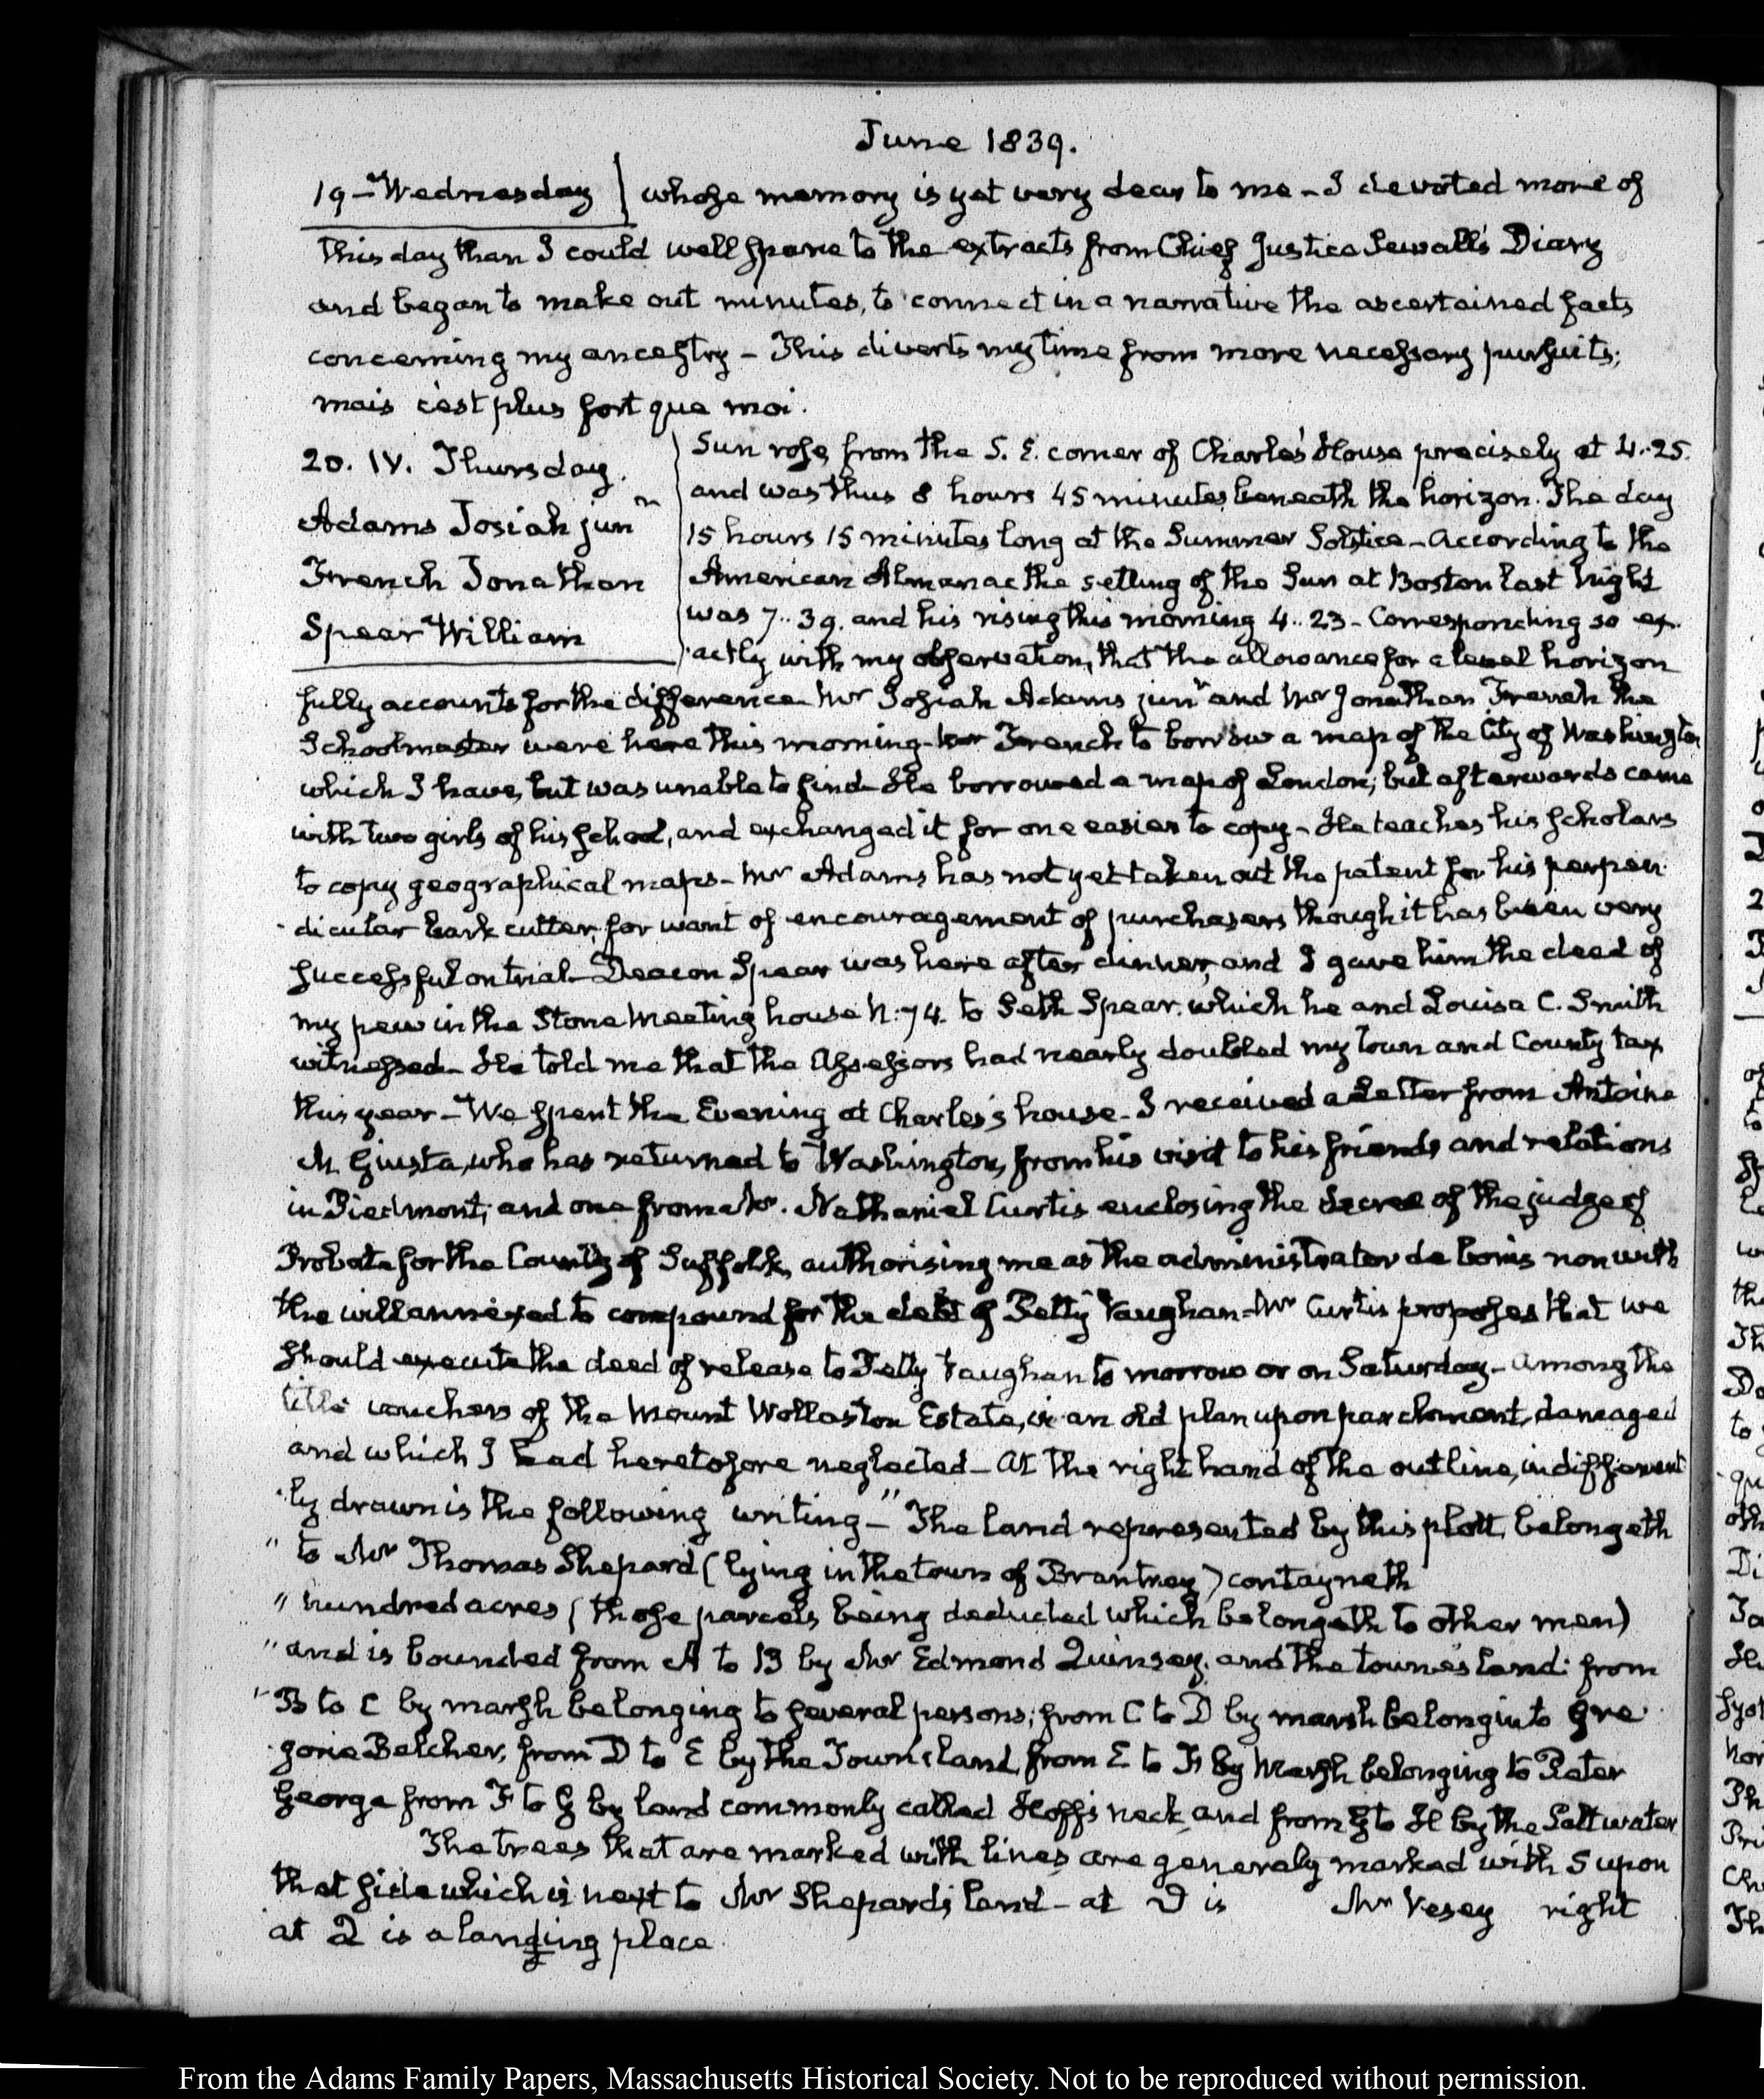 June 1839.
19 – Wednesday } whose memory is yet very dear to me – I devoted more of
this day than I could well spare to the extracts from Chief Justice Sewall's Diary
and began to make out minutes, to connect in a narrative the ascertained facts
concerning my ancestry – This diverts my time from more necessary pursuits;
mais c'est plus fort que moi.
20. IV. Thursday.
Adams Josiah junr
French Jonathan
Spear William
Sun rose, from the S. E. corner of Charles' House precisely at 4..25.
and was thus 8 hours 45 minutes beneath the horizon. The day
15 hours 15 minutes long at the Summer Solstice – According to the
American Almanac the setting of the Sun at Boston last night
was 7..39. and his rising this morning 4..23 – Corresponding so ex-
-actly with my observation, that the allowance for a level horizon
fully accounts for the difference – Mr Josiah Adams junr and Mr Jonathan French the
Schoolmaster were here this morning – Mr French to borrow a map of the City of Washington
which I have, but was unable to find – He borrowed a map of London; but afterwards came
with two girls of his school, and exchanged it for one easier to copy – He teaches his scholars
to copy geographical maps – Mr Adams has not yet taken out the patent for his perpen-
-dicular bark cutter, for want of encouragement of purchasers though it has been very
successful on trial – Deacon Spear was here after dinner, and I gave him the deed of
my pew in the Stone Meeting house N: 74. to Seth Spear. which he and Louisa C. Smith
witnessed – He told me that the Assessors had nearly doubled my Town and County tax
this year – We spent the Evening at Charles's house – I received a Letter from Antoine
M. Giusta, who has returned to Washington, from his visit to his friends and relations
in Piedmont; and one from Mr. Nathaniel Curtis enclosing the decree of the judge of
Probate for the County of Suffolk, authorising me as the administrator de bonis non with
the will annexed to compound for the debt of Petty Vaughan – Mr Curtis proposes that we
should execute the deed of release to Petty Vaughan to morrow or on Saturday – Among the
title vouchers of the Mount Wollaston Estate, is an old plan upon parchment, damaged
and which I had heretofore neglected – At the right hand of the outline, indifferent-
-ly drawn is the following writing – "The land represented by this plott, belongeth
" to Mr Thomas Shepard (lying in the town of Brantrey) contayneth
" hundred acres (those parcels being deducted which belongeth to other men)
" and is bounded from A to B by Mr Edmond Quinsey. and the townes land: from
" B to C by marsh belonging to several persons; from C to D by marsh belongin to Gre-
-gorie Belcher, from D to E by the Town's land, from E to F by Marsh belonging to Peter
George from F to G by land commonly called Hoff's neck, and from G to H by the Salt water
The trees that are marked with lines are generaly marked with S upon
that side which is next to Mr Shepards land – at D is Mr Vesey right
at Q is a landing place
From the Adams Family Papers, Massachusetts Historical Society. Not to be reproduced without permission.